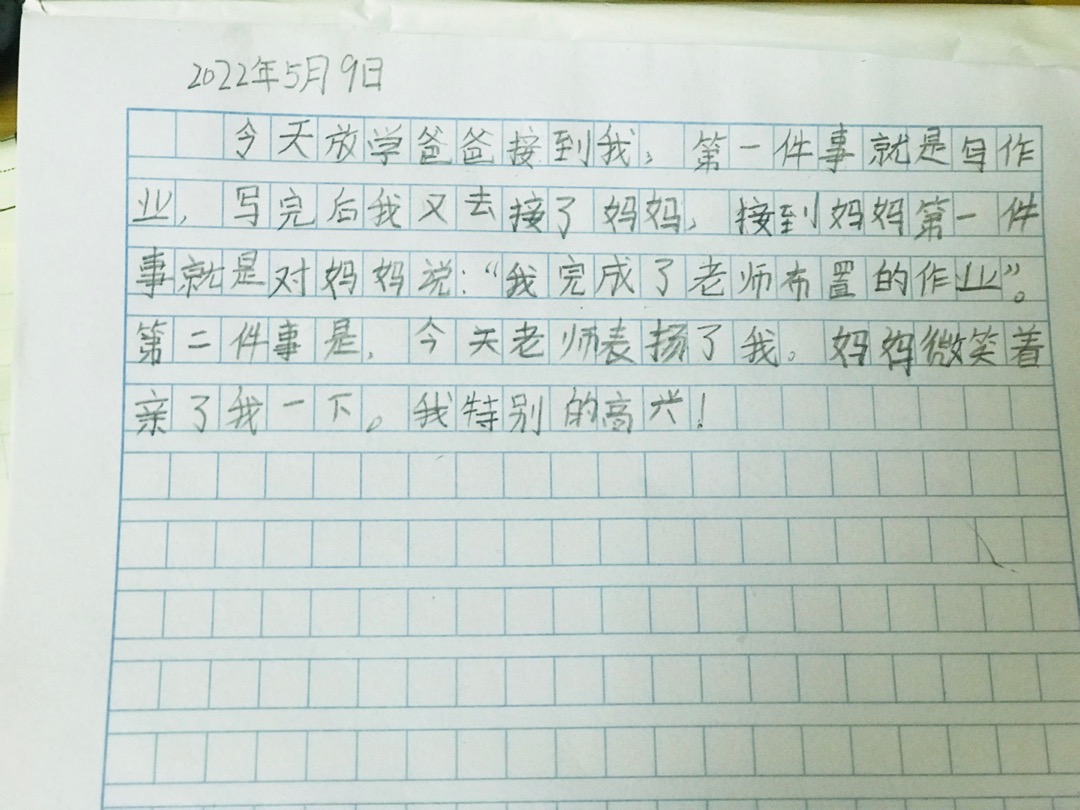 2022年5月9日
今天放学爸爸接到我，第一件事就是写作
业，写完后我又去接了妈妈，接到妈妈第一件
事就是对妈妈说：“我完成了老师布置的作业”。
第二件事是，今天老师表扬了我。妈妈微笑着
亲了我一下。我特别的高兴！